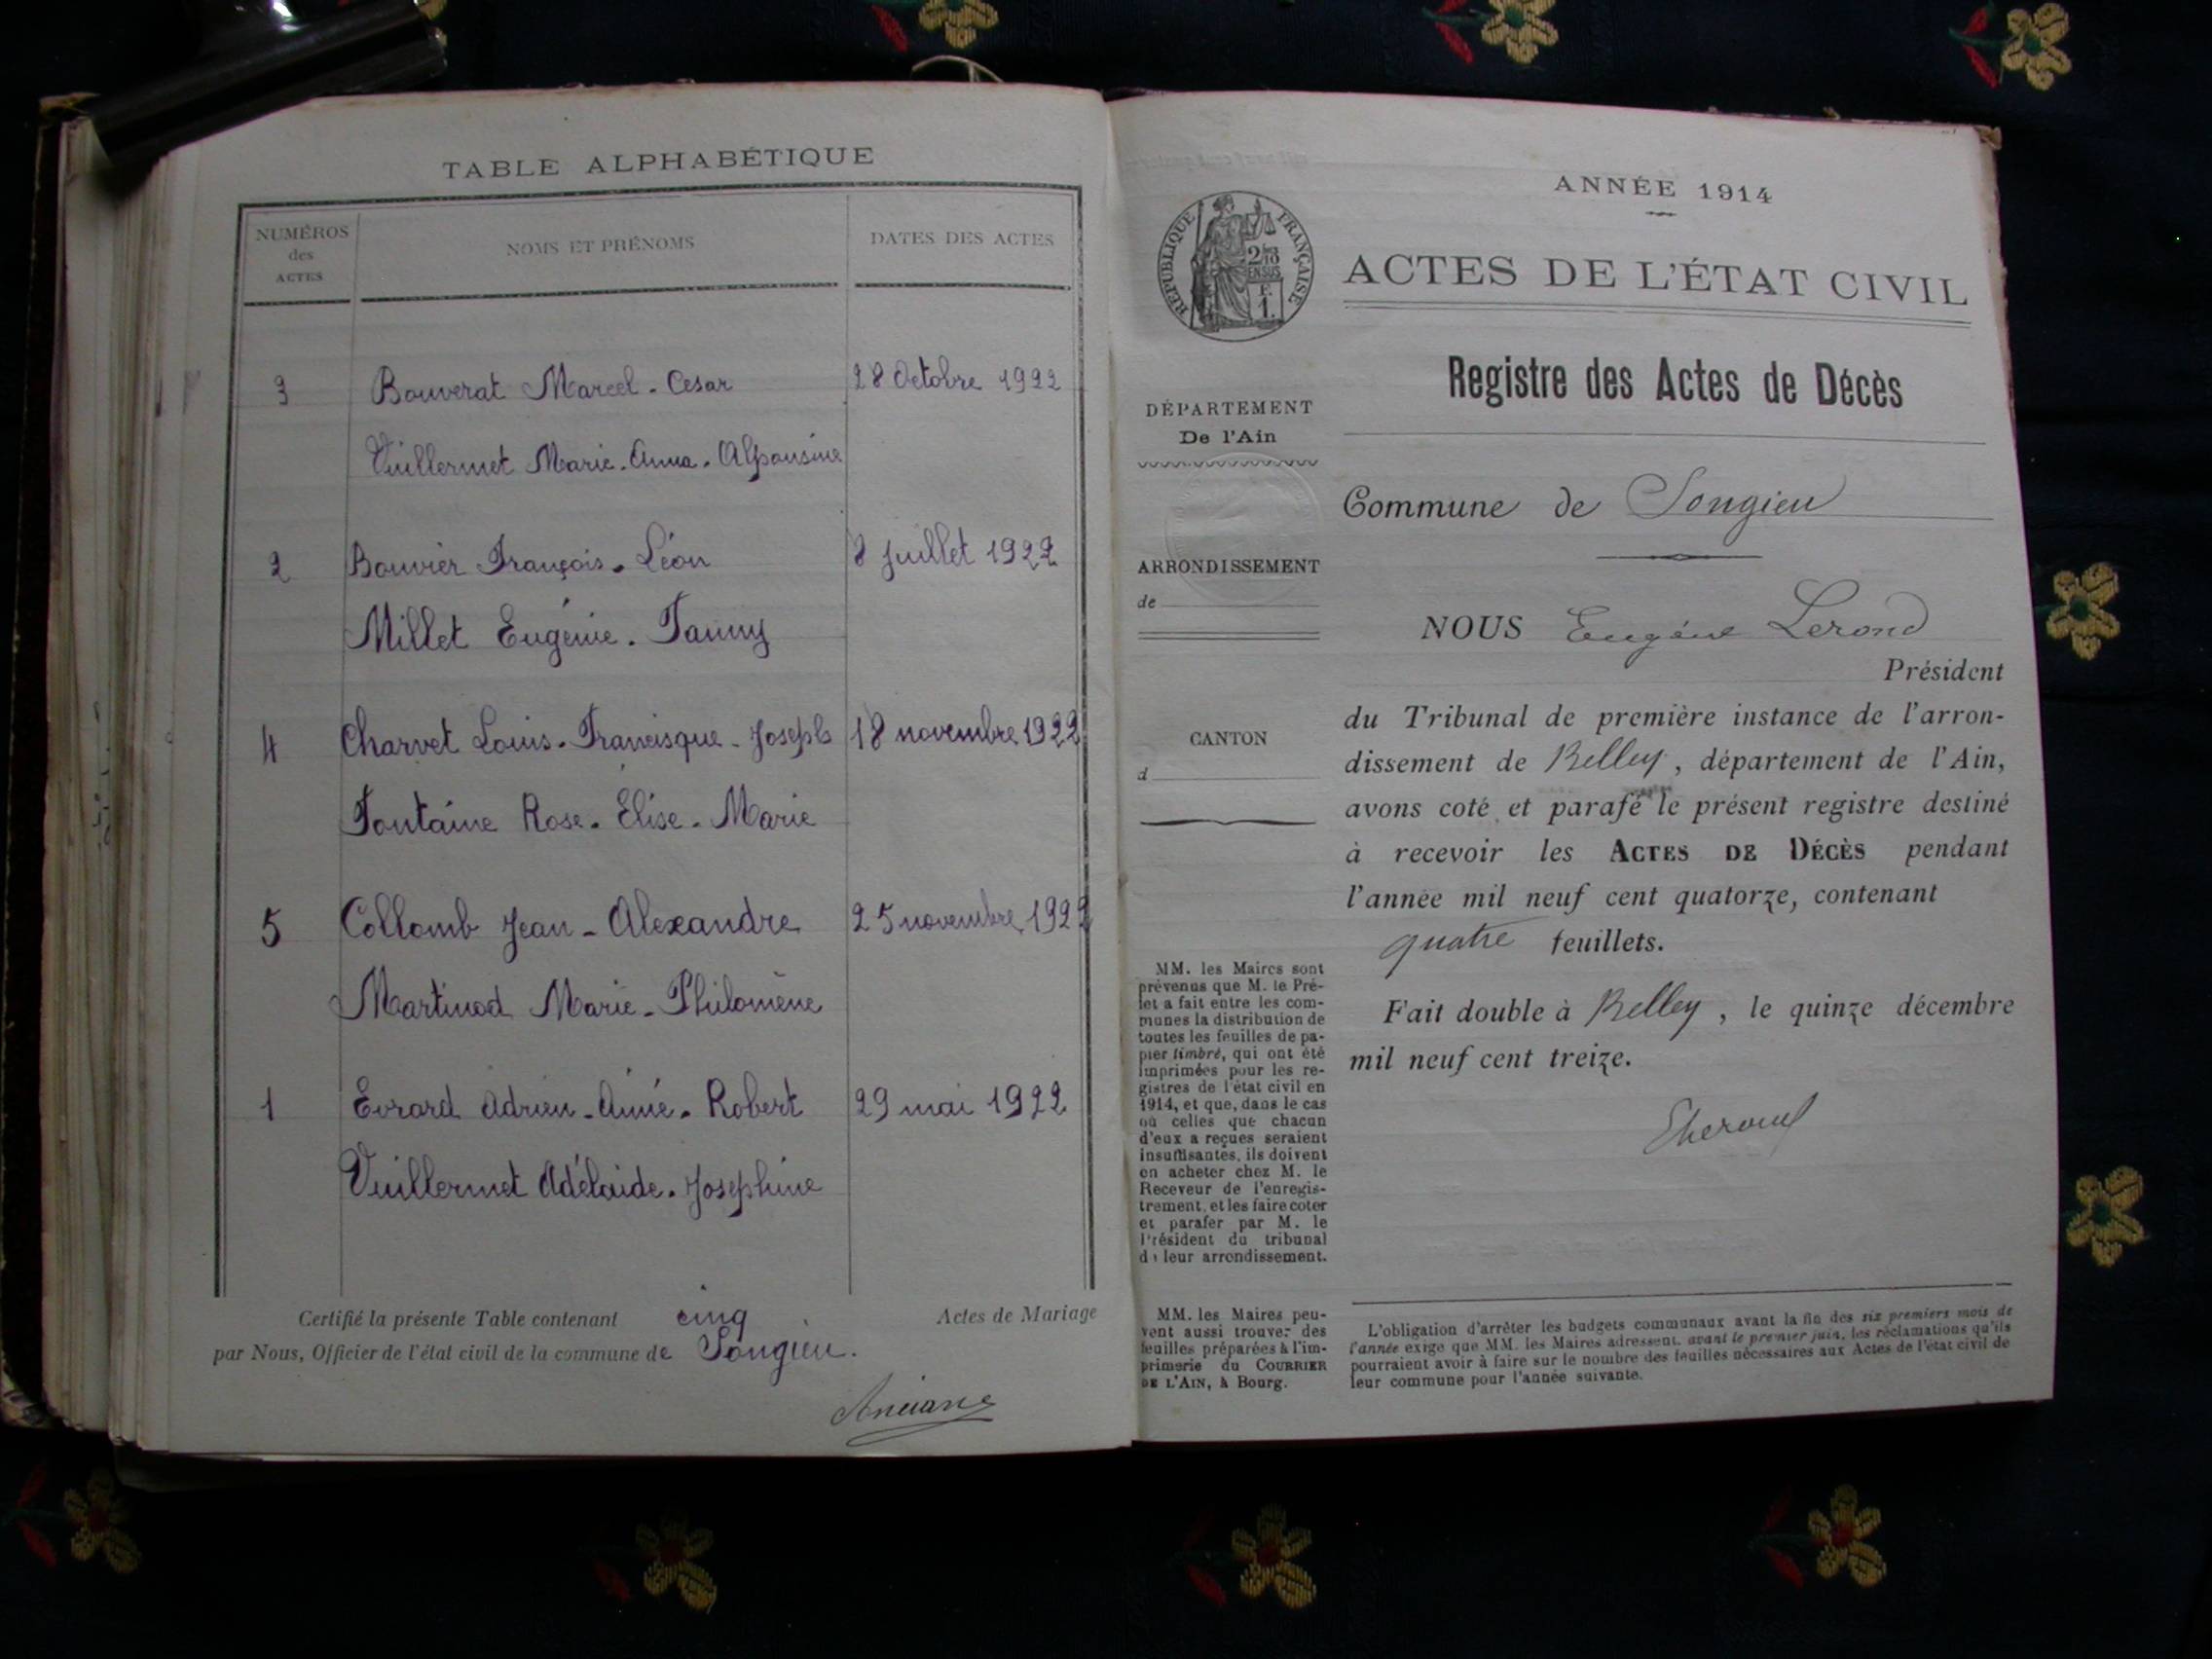 TABLE ALPHABÉTIQUE
NUMÉROS
des
ACTES
NOMS ET PRÉNOMS
DATES DES ACTES
3 Bouverat Marcel-Cesar 28 Octobre 1922
Vuillermet Marie-Anna-Alponsine
2 Bouvier François-Léon 8 Juillet 1922
Millet Eugénie-Fanny
4 Charvet Louis-Francisque-Joseph 18 novembre 1922
Fontaine Rose-Elise-Marie
5 Collomb Jean-Alexandre 25 novembre 1922
Martinod Marie-Philomène
1 Evrard Adrien-Aimé-Robert 29 mai 1922
Vuillermet Adélaide-Josephine
Certifié la présente Table contenant cinq Actes de Mariage
par Nous, Officier de l'état civil de la commune de Songieu.
ANNÉE 1914
RÉPUBLIQUE FRANÇAISE
2/10
EN SUS
F.
1.
ACTES DE L'ÉTAT CIVIL
Registre des Actes de Décès
DÉPARTEMENT
De l'Ain
ARRONDISSEMENT
de
CANTON
d
MM. les Maires sont
prévenus que M. le Pré-
fet a fait entre les com-
munes la distribution de
toutes les feuilles de pa-
pier timbré, qui ont été
imprimées pour les re-
gistres de l'état civil en
1914, et que, dans le cas
où celles que chacun
d'eux a reçues seraient
insuffisantes, ils doivent
en acheter chez M. le
Receveur de l'enregis-
trement, et les faire coter
et parafer par M. le
Président du tribunal
de leur arrondissement.
MM. les Maires peu-
vent aussi trouver des
feuilles préparées à l'im-
primerie du COURRIER
DE L'AIN, à Bourg.
Commune de Songieu
NOUS Eugène Lerond
Président
du Tribunal de première instance de l'arron-
dissement de Belley, département de l'Ain,
avons coté et parafé le présent registre destiné
à recevoir les ACTES DE DÉCÈS pendant
l'année mil neuf cent quatorze, contenant
quatre feuillets.
Fait double à Belley, le quinze décembre
mil neuf cent treize.
L'obligation d'arrêter les budgets communaux avant la fin des six premiers mois de
l'année exige que MM. les Maires adressent, avant le premier juin, les réclamations qu'ils
pourraient avoir à faire sur le nombre des feuilles nécessaires aux Actes de l'état civil de
leur commune pour l'année suivante.